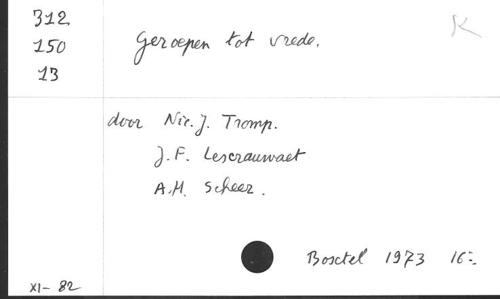 312
150
13
K
Geroepen tot vrede.
door Nic. J. Tromp.
J. F. Lescrauwaet
A. H. Scheer.
Boxtel 1973 16=
XI- 82